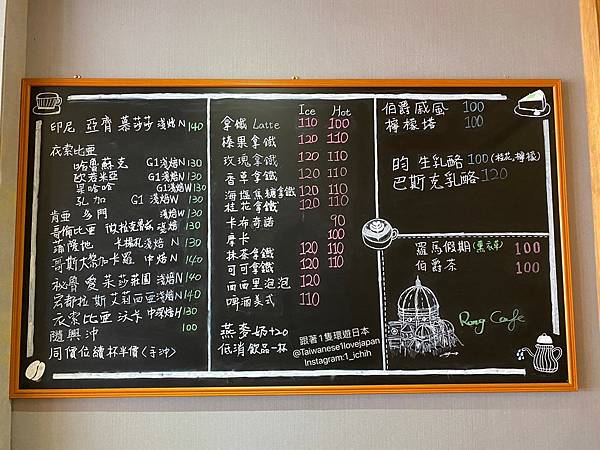 印尼 亞齊 慕莎莎 淺焙 N 140
衣索比亞
哈魯蘇克 G1淺焙N 130
歐若米亞 G1淺焙N 130
果哈哈 G1淺焙W 130
孔加 G1 淺焙W 130
肯亞 多門 淺焙W 130
哥倫比亞 微拉 淺焙W 130
薩隆他 卡楊孔 淺焙 N 130
哥斯大黎加 卡蘿 中焙 N 140
祕魯 愛莱莎莊園 淺焙N 140
宏都拉斯 艾莉西亞 淺焙N 140
衣索比亞 沃卡 中深焙H 130
隨興沖 100
同價位續杯半價(手沖)
Ice Hot
拿鐵 Latte 110 100
榛果拿鐵 120 110
玫瑰拿鐵 120 110
香草拿鐵 120 110
海塩焦糖拿鐵 120 110
桂花拿鐵 120 110
卡布奇諾 90
摩卡 100
抹茶拿鐵 120 110
可可拿鐵 120 110
西西里泡泡 120
啤酒美式 110
燕麥奶+20
低消飲品一杯
跟著1隻環遊日本
@Taiwanese1lovejapan
Instagram:1_ichih
伯爵戚風 100
檸檬塔 100
昀 生乳酪 100 (桂花、檸檬)
巴斯克乳酪 120
羅馬假期 (果茶) 100
伯爵茶 100
Rong Cafe